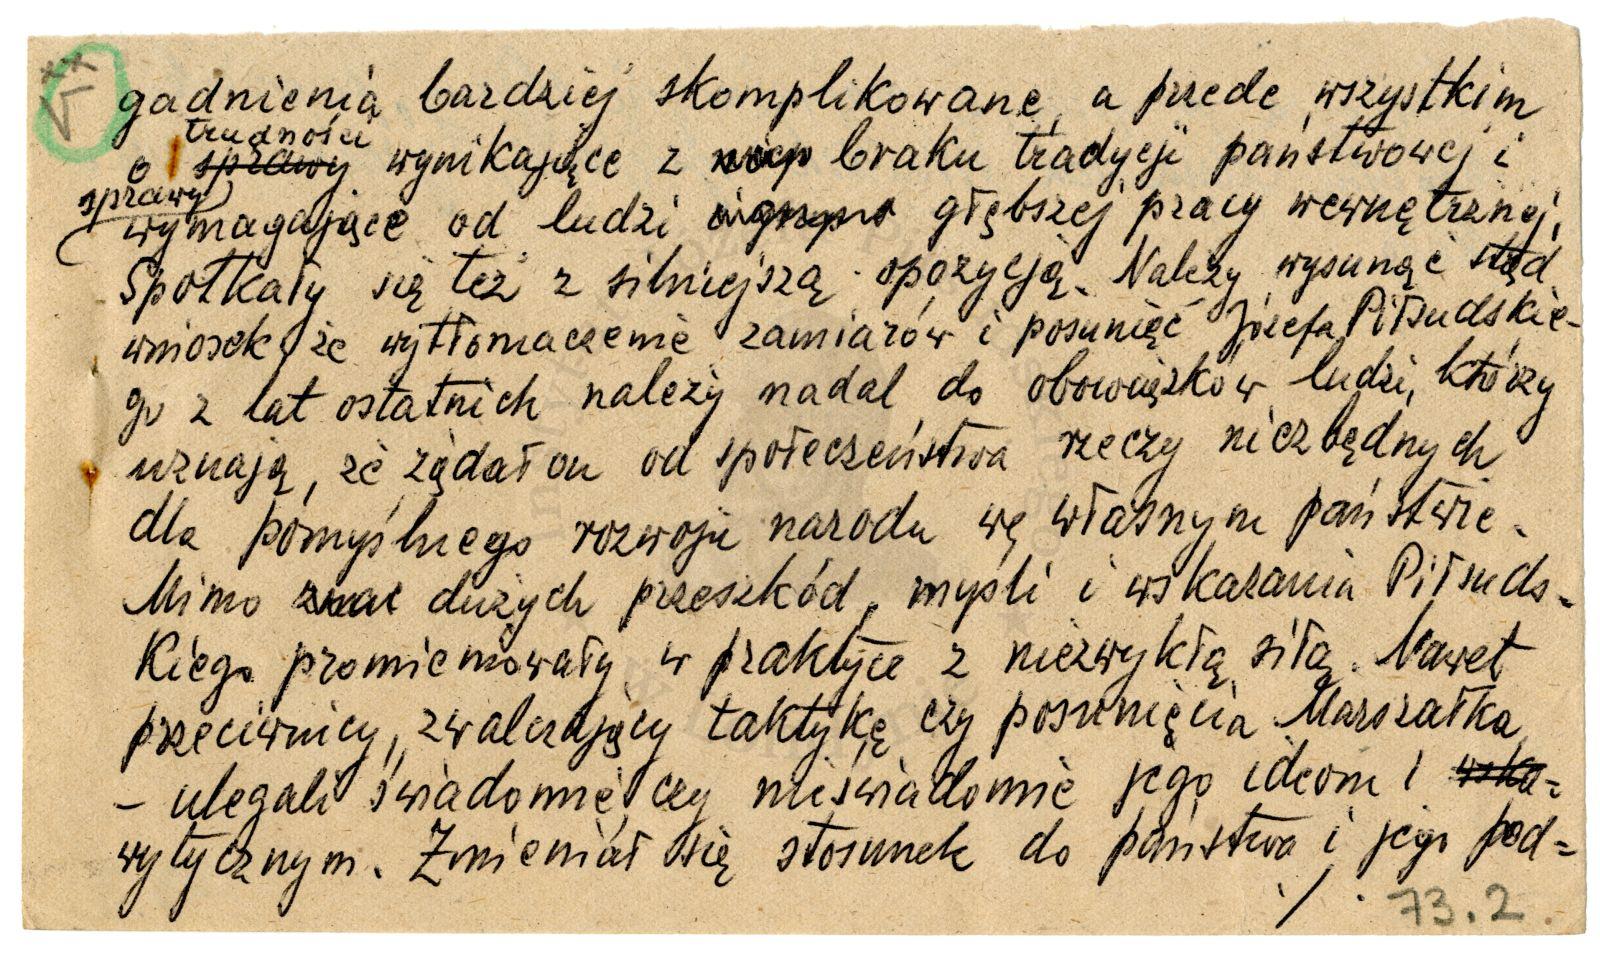 gadnienia bardziej skomplikowane, a przede wszystkim
trudności
o sprawy wynikające z braku tradycji państwowej i
sprawy
wymagające od ludzi głębszej pracy wewnętrznej.
Spotkały się też z silniejszą opozycją. Należy wysunąć stąd
wniosek, że wytłomaczenie zamiarów i posunięć Józefa Piłsudskie-
go z lat ostatnich należy nadal do obowiązków ludzi, którzy
uznają, że żądał on od społeczeństwa rzeczy niezbędnych
dla pomyślnego rozwoju narodu we własnym państwie.
Mimo dużych przeszkód, myśli i wskazania Piłsuds-
kiego promieniowały w praktyce z niezwykłą siłą. Nawet
przeciwnicy, zwalczający taktykę czy posunięcia Marszałka,
- ulegali świadomie, czy nieświadomie jego ideom i wska-
wytycznym. Zmieniał się stosunek do państwa i jego pod-
./.
73.2